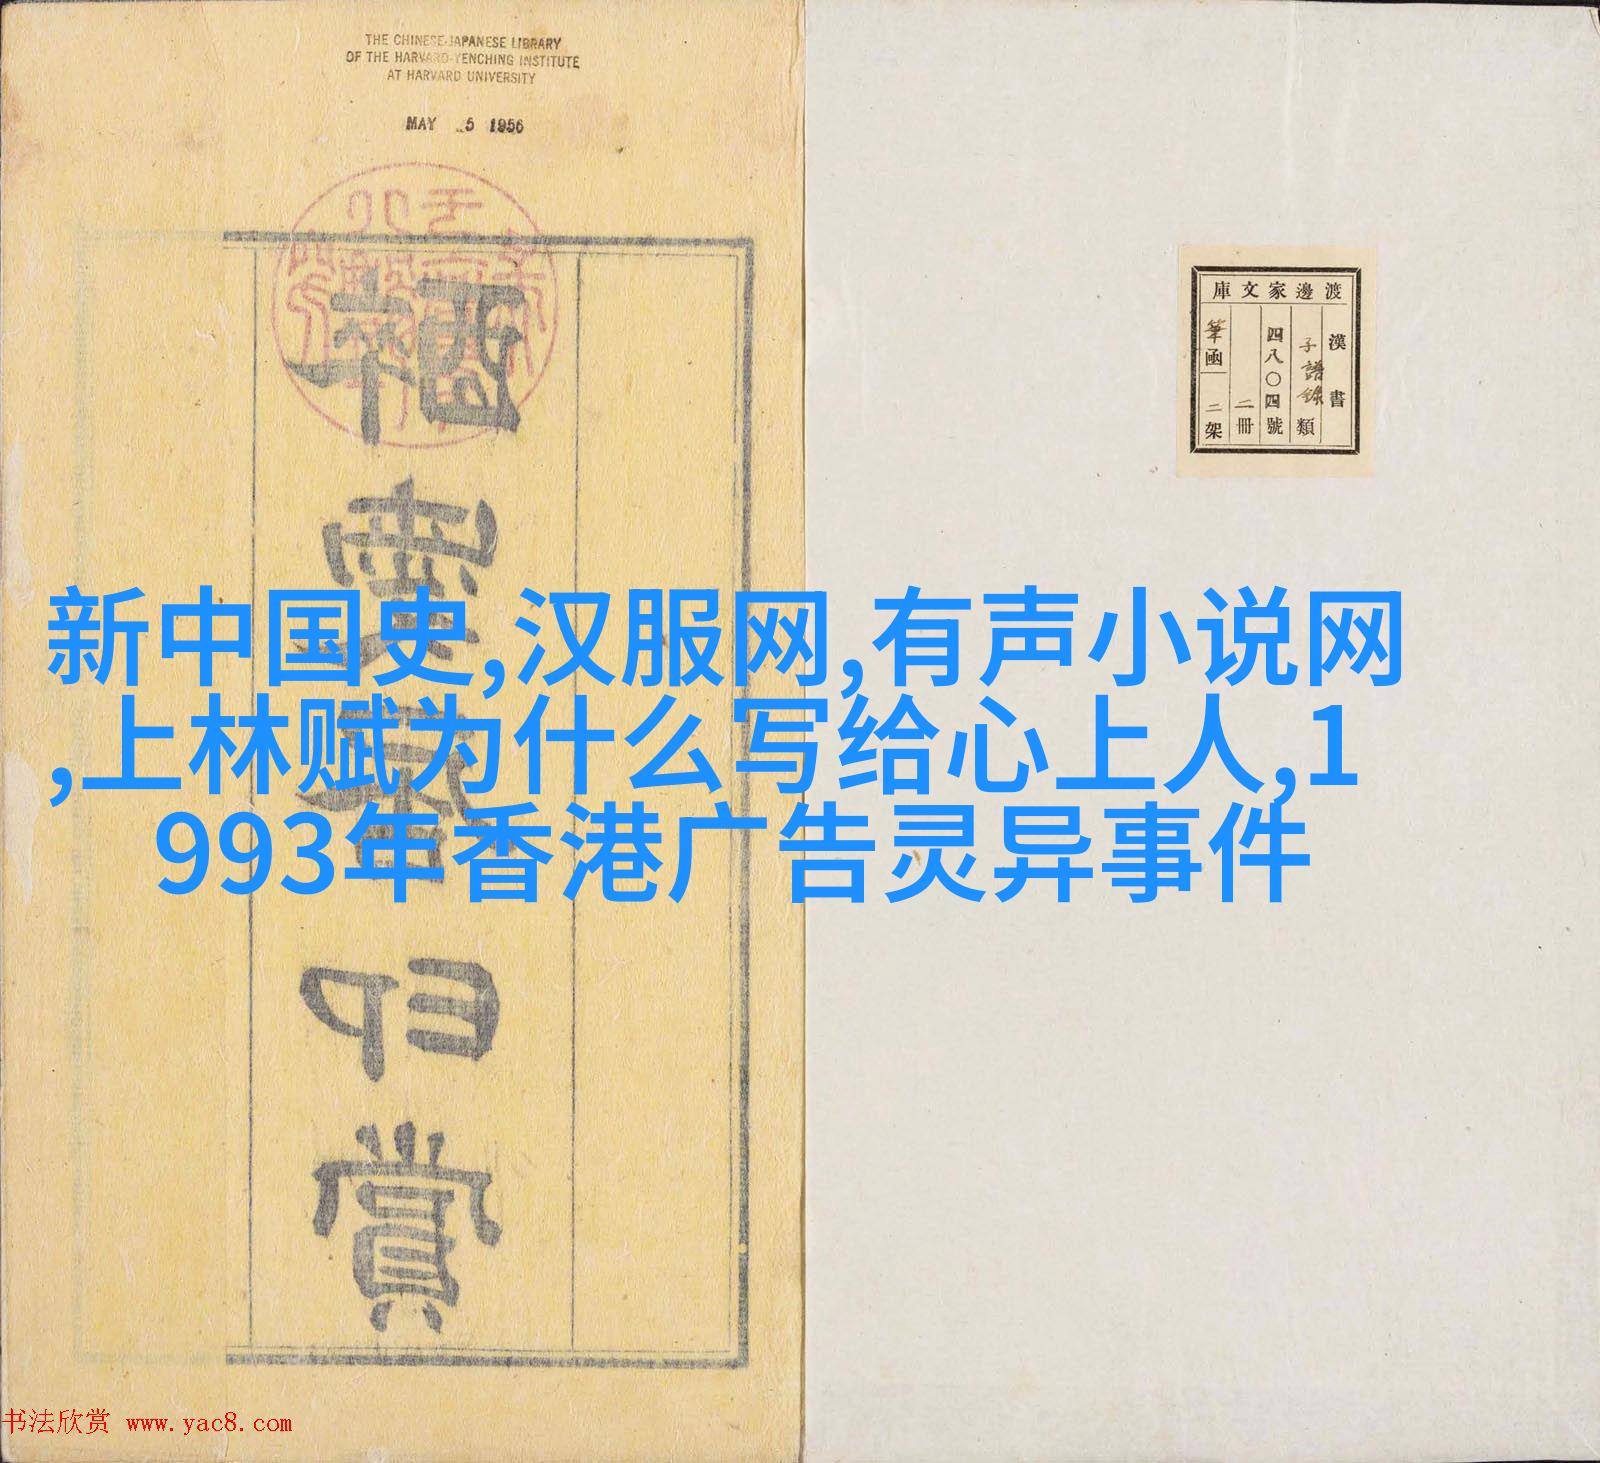 THE CHINESE-JAPANESE LIBRARY
OF THE HARVARD-YENCHING INSTITUTE
AT HARVARD UNIVERSITY
MAY 5 1956
渡邊家文庫
漢書
子譜錄類
四八〇四號
二冊
筆函二架
新中国史,汉服网,有声小说网
,上林赋为什么写给心上人,1
993年香港广告灵异事件
印賞
书法欣赏 www.yac8.com